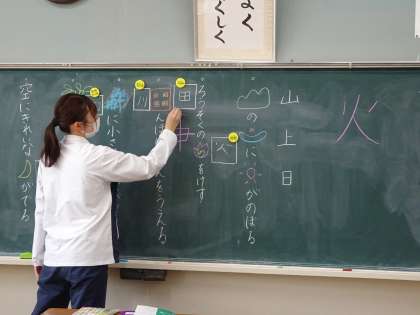 よく
しく
火
山上日
の に がのぼる
火
ろうそくの をけす
田
んぼ をうえる
川
に小さ
空にきれいな がでる